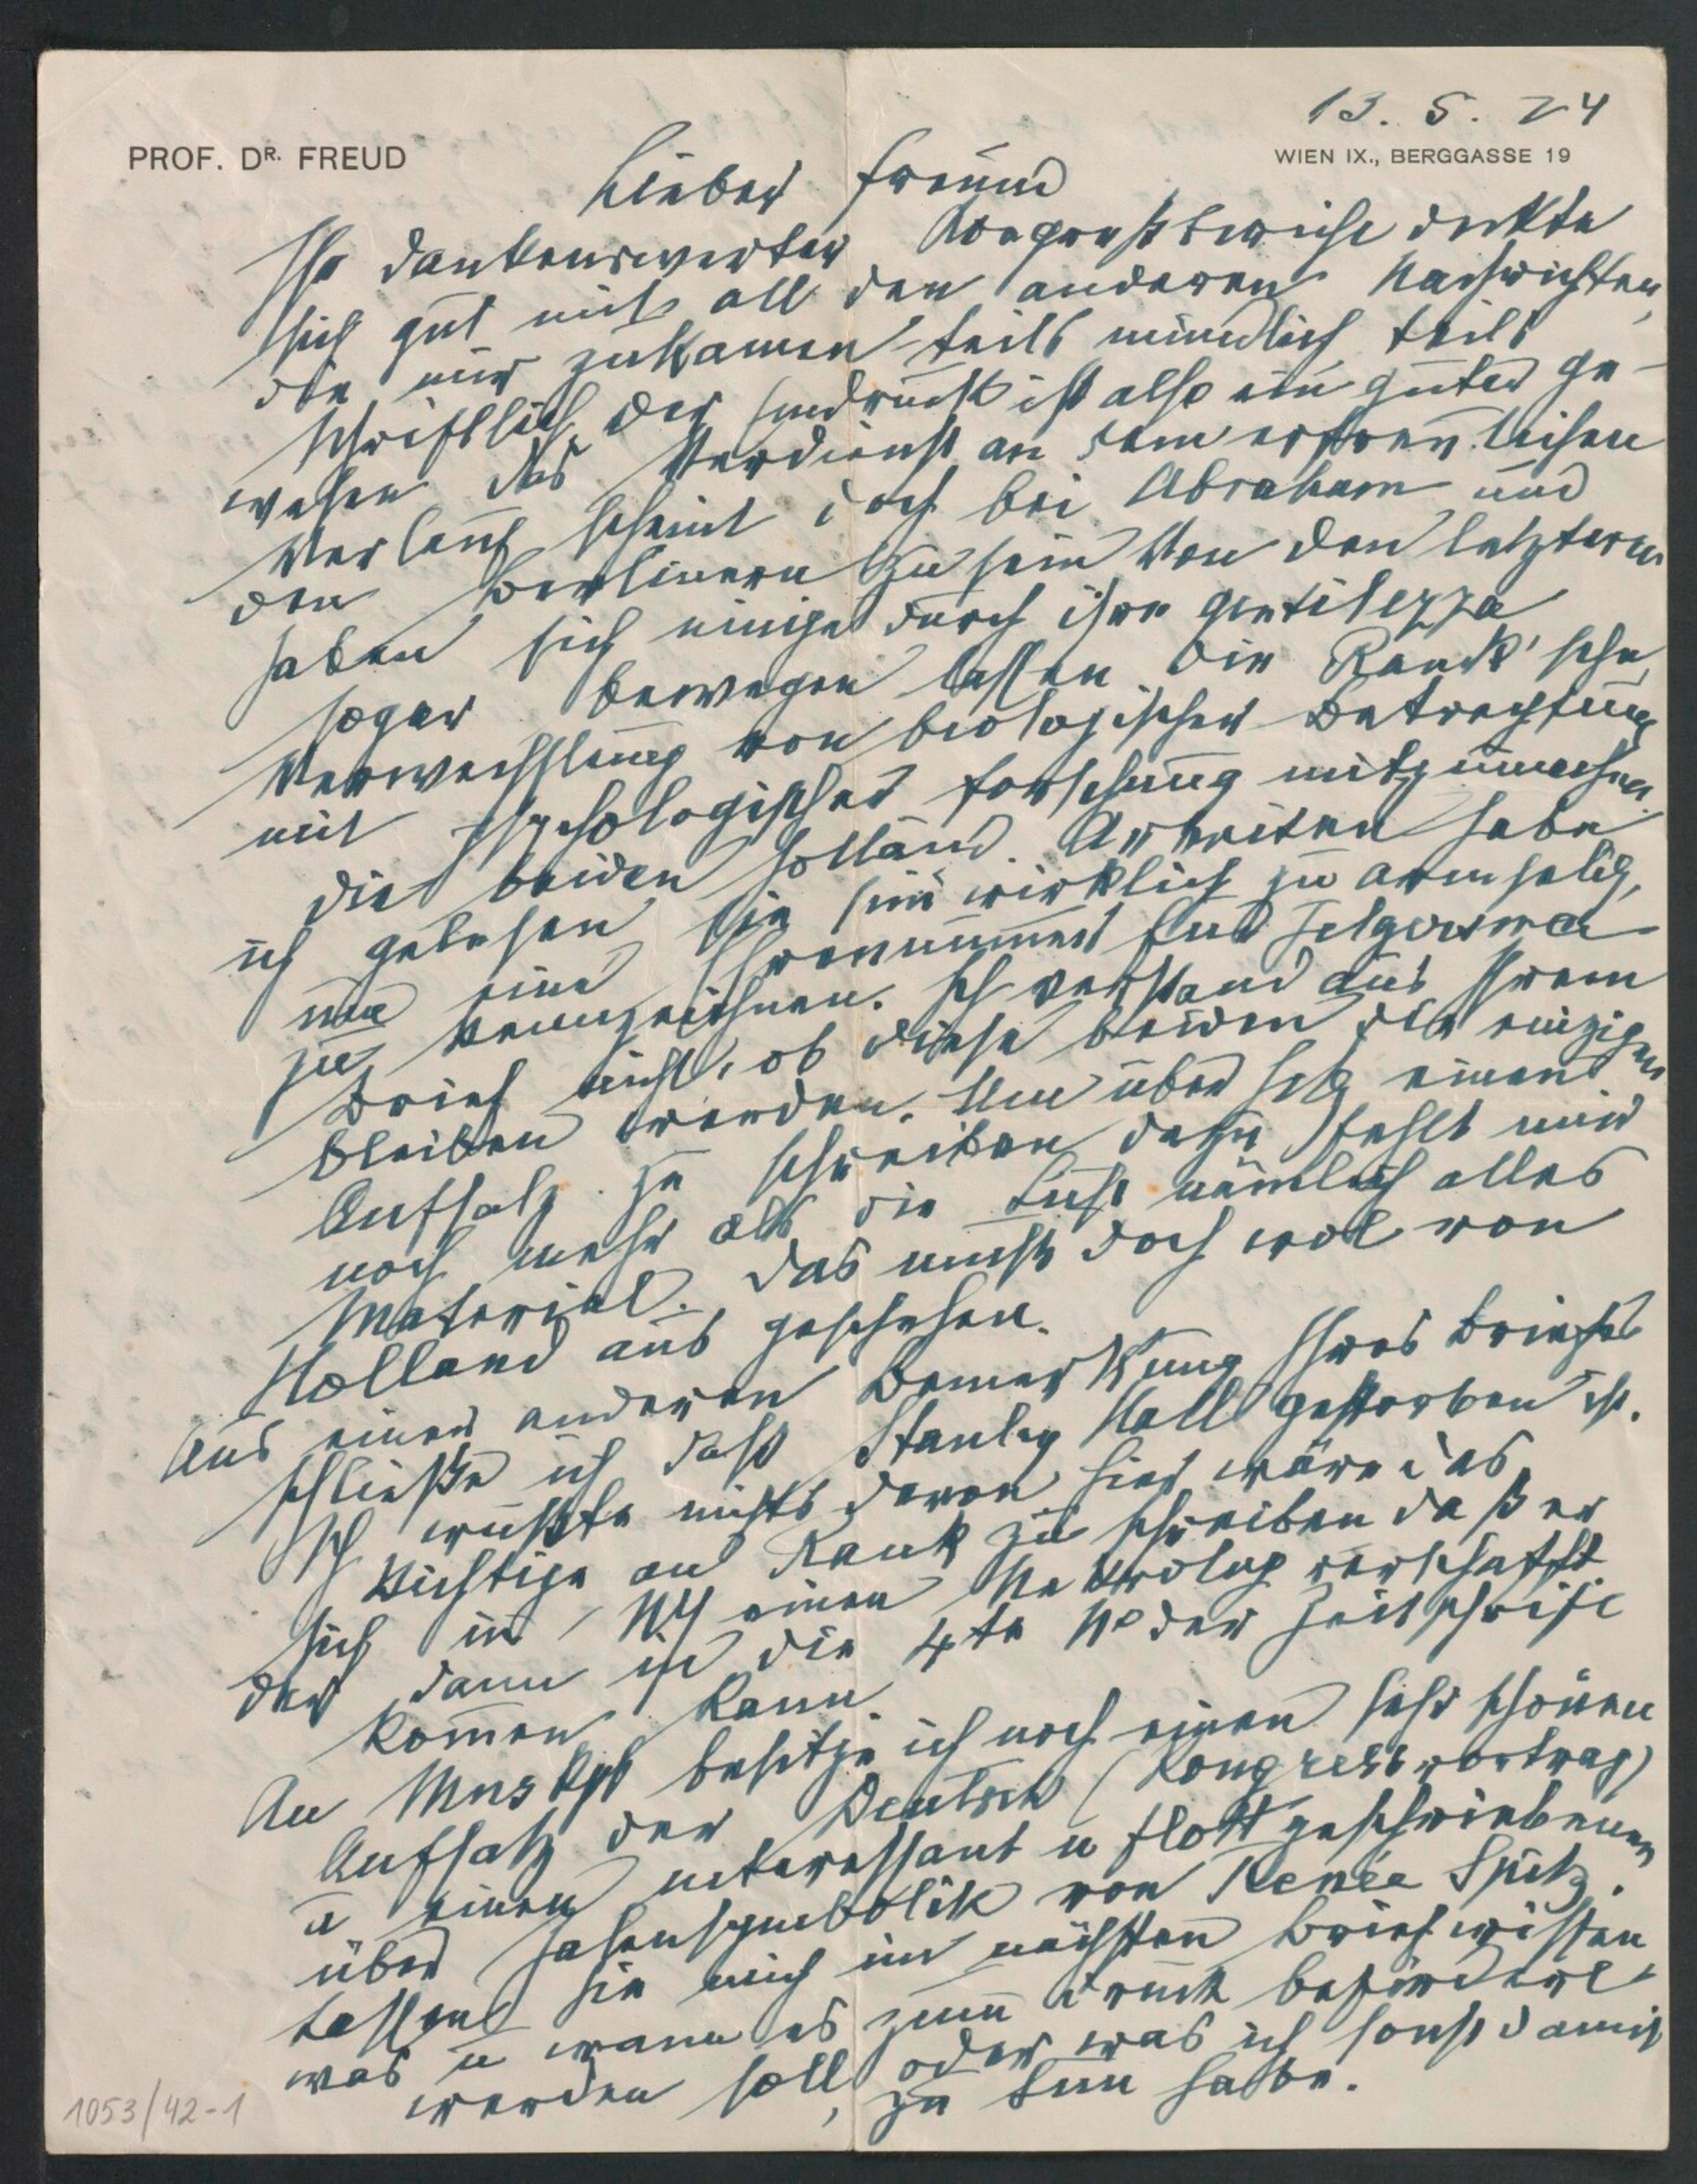 13. 5. 24
PROF. DR. FREUD
WIEN IX., BERGGASSE 19
Lieber Freund
Ihr dankenswerter Kongreßbericht deckte
sich gut mit all den anderen Nachrichten,
die mir zukamen teils mündlich teils
schriftlich. Der Eindruck ist also ein guter ge-
wesen. Das Verdienst an dem erfreulichen
Verlauf scheint doch bei Abraham und
den Berlinern zu sein. Von den letzteren
haben sich einige durch ihre gentilezza
sogar bewegen lassen die Rank'sche
Verwechslung von biologischer Betrachtung
mit psychologischer Forschung mitzumachen.
Die beiden holländ. Arbeiten habe
ich gelesen. Sie sind wirklich zu armselig,
um eine Ehrennummer für Jelgersma
zu kennzeichnen. Ich verstand aus Ihrem
Brief nicht, ob diese beiden die einzigen
bleiben werden. Um über selbst einen
Aufsatz zu schreiben dazu fehlt mir
noch mehr als die Lust nämlich alles
Material. Das muß doch wol von
Holland aus geschehen.
Aus einer anderen Bemerkung Ihres Briefes
schließe ich daß Stanley Hall gestorben ist.
Ich wußte nichts davon. Hier wäre das
Richtige an Rank zu schreiben daß er
sich in NY einen Nekrolog verschafft
der dann in die 4te No der Zeitschrift
kommen kann.
An Mnskpt besitze ich noch einen sehr schönen
Aufsatz der Deutsch (Kongressvortrag)
u einen interessant u flott geschriebenen
über Hasensymbolik von Renée Spitz.
Lassen Sie mich im nächsten Brief wissen
was u wann es zum Druck befördert
werden soll, oder was ich sonst damit
zu tun habe.
1053/42-1